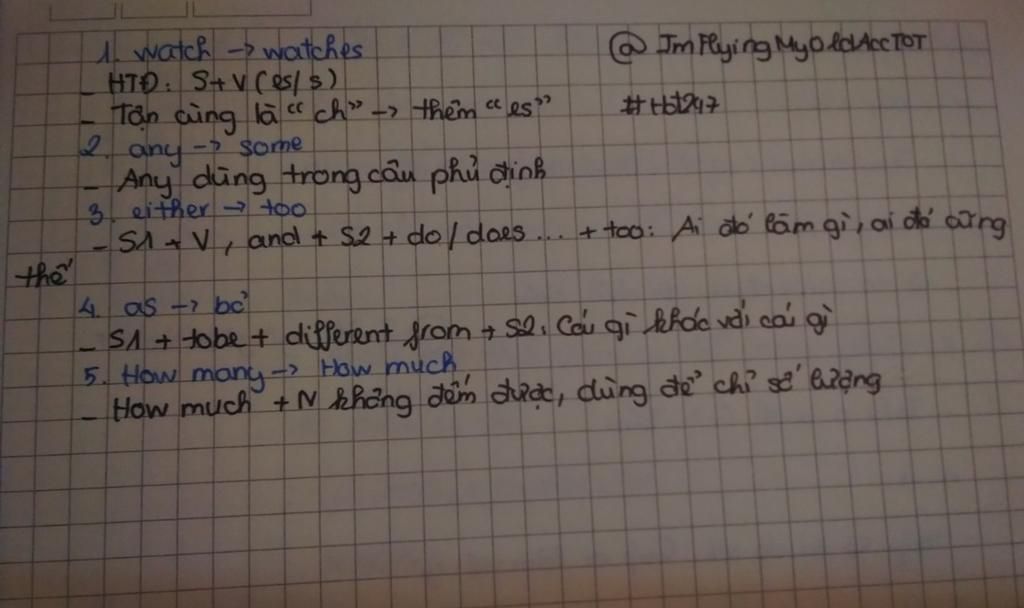 1. watch -> watches @ ImFlyingMyOldAccTOT
- HTĐ: S+V(es/s)
- Tận cùng là “ch” -> thêm “es” #tbt247
2. any -> some
- Any dùng trong câu phủ định
3. either -> too
- S1 + V, and + S2 + do/does... + too: Ai đó làm gì, ai đó cũng
thế
4. as -> bỏ
- S1 + tobe + different from + S2: Cái gì khác với cái gì
5. How many -> How much
- How much + N không đếm được, dùng để chỉ số lượng